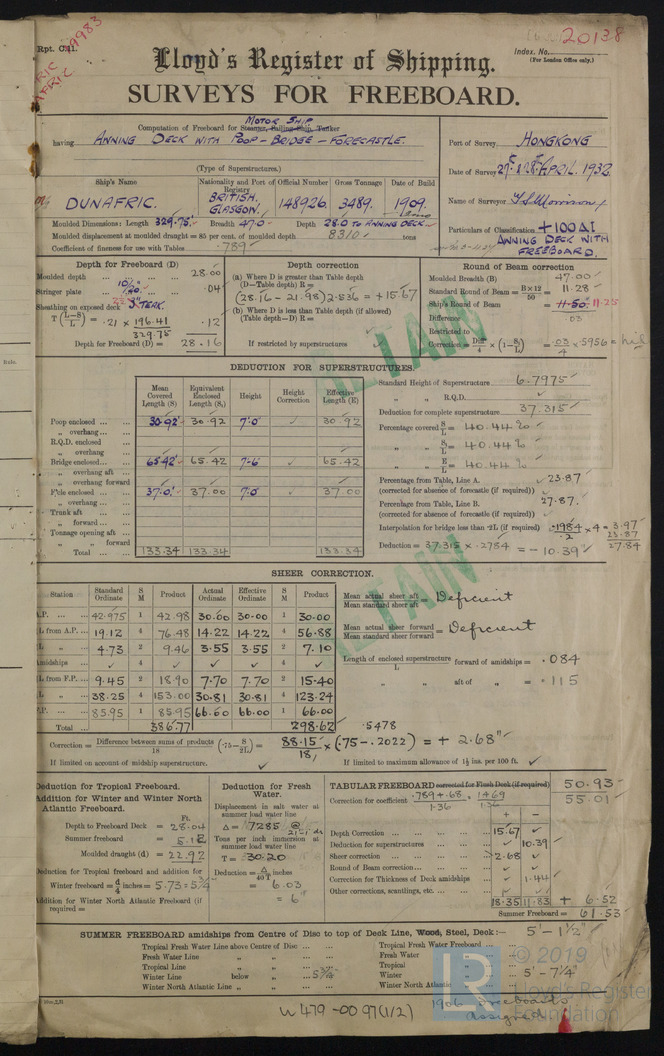 Rpt. C.11.
20138
Index. No.
(For London Office only.)
Lloyd's Register of Shipping.
SURVEYS FOR FREEBOARD.
MOTOR SHIP
Computation of Freeboard for Steamer, Sailing Ship, Tanker
having AWNING DECK WITH POOP - BRIDGE - FORECASTLE.
(Type of Superstructures.)
Port of Survey HONGKONG
Date of Survey APRIL. 1932
Name of Surveyor
Particulars of Classification +100 A1
AWNING DECK WITH
FREEBOARD.
Ship's Name
Nationality and Port of Registry
Official Number
Gross Tonnage
Date of Build
DUNAFRIC.
BRITISH.
GLASGOW.
148926.
3489.
1909.
Moulded Dimensions: Length 329.75' Breadth 47.0 Depth 28.0 TO AWNING DECK
Moulded displacement at moulded draught = 85 per cent. of moulded depth 8310 tons
Coefficient of fineness for use with Tables .789
Depth for Freeboard (D)
Moulded depth ... 28.00
Stringer plate ... .04
Sheathing on exposed deck 3" TEAK.
T (L-S/L) = .21 x 196.41 / 329.75 .12
Depth for Freeboard (D) = 28.16
Depth correction
(a) Where D is greater than Table depth
(D-Table depth) R =
(28.16 - 21.98) 2.536 = +15.67
(b) Where D is less than Table depth (if allowed)
(Table depth-D) R =
If restricted by superstructures
Round of Beam correction
Moulded Breadth (B) 47.00
Standard Round of Beam = B×12/50 = 11.28
Ship's Round of Beam = 11.50 11.25
Difference .03
Restricted to
Correction = Diff/4 × (1-S/L) = .03/4 x .5956 = nil
DEDUCTION FOR SUPERSTRUCTURES.
Mean Covered Length (S)
Equivalent Enclosed Length (S₁)
Height
Height Correction
Effective Length (E)
Poop enclosed ... 30.92' 30.92 7'.0" ✓ 30.92
" overhang ...
R.Q.D. enclosed
" overhang
Bridge enclosed ... 65.42' 65.42 7'-6" ✓ 65.42
" overhang aft
" overhang forward
F'cle enclosed ... 37.0' 37.00 7'.0" 37.00
" overhang ...
Trunk aft
" forward ...
Tonnage opening aft
" " forward
Total ... 133.34 133.34 133.34
Standard Height of Superstructure 6.7975
" " R.Q.D.
Deduction for complete superstructure 37.315
Percentage covered S/L = 40.44%
" " S₁/L = 40.44%
" " E/L = 40.44%
Percentage from Table, Line A. 23.87
(corrected for absence of forecastle (if required))
Percentage from Table, Line B. 27.87.
(corrected for absence of forecastle (if required))
Interpolation for bridge less than .2L (if required) .1984/.2 x 4 = 3.97
23.87
27.84
Deduction = 37.315 x .2784 = -10.39
SHEER CORRECTION.
Station
Standard Ordinate
S M
Product
Actual Ordinate
Effective Ordinate
S M
Product
A.P. ... 42.975 1 42.98 30.00 30.00 1 30.00
L from A.P. ... 19.12 4 76.48 14.22 14.22 4 56.88
L " ... 4.73 2 9.46 3.55 3.55 2 7.10
Amidships ✓ 4 ✓ ✓ ✓ 4 ✓
L from F.P. ... 9.45 2 18.90 7.70 7.70 2 15.40
L " ... 38.25 4 153.00 30.81 30.81 4 123.24
F.P. ... 85.95 1 85.95 66.00 66.00 1 66.00
Total ... 386.77 298.62
Mean actual sheer aft / Mean standard sheer aft = Deficient
Mean actual sheer forward / Mean standard sheer forward = Deficient
Length of enclosed superstructure / L forward of amidships = .084
" " aft of " = .115
.5478
Correction = Difference between sums of products / 18 (.75 - S/2L) = 88.15/18 x (.75 - .2022) = + 2.68"
If limited on account of midship superstructure.
If limited to maximum allowance of 1½ ins. per 100 ft.
Deduction for Tropical Freeboard.
Addition for Winter and Winter North Atlantic Freeboard.
Ft.
Depth to Freeboard Deck = 28.04
Summer freeboard = 5.12
Moulded draught (d) = 22.92
Deduction for Tropical freeboard and addition for
Winter freeboard = d/4 inches = 5.73 = 5¾
Addition for Winter North Atlantic Freeboard (if required) =
Deduction for Fresh Water.
Displacement in salt water at summer load water line
Δ = 7285
Tons per inch immersion at summer load water line
T = 30.20
Deduction = Δ/40T inches
= 6.03
= 6"
TABULAR FREEBOARD corrected for Flush Deck (if required) 50.93
Correction for coefficient .789+.68/1.36 = 1.469/1.36 55.01
+ -
Depth Correction ... 15.67 ✓
Deduction for superstructures ... ✓ 10.39
Sheer correction ... 2.68 ✓
Round of Beam correction ... ✓ ✓
Correction for Thickness of Deck amidships ✓ 1.44
Other corrections, scantlings, etc. ... ✓ ✓
18.35 11.83 + 6.52
Summer Freeboard = 61.53
SUMMER FREEBOARD amidships from Centre of Disc to top of Deck Line, Wood, Steel, Deck:— 5' - 1½"
Tropical Fresh Water Line above Centre of Disc ...
Fresh Water Line " "
Tropical Line " "
Winter Line below " 5¾"
Winter North Atlantic Line " "
Tropical Fresh Water Freeboard ...
Fresh Water "
Tropical "
Winter " 5' - 7¼"
Winter North Atlantic "
1906 Freeboards
assigned
W479-0097(1/2)
© 2019
Lloyd's Register
Foundation
LR